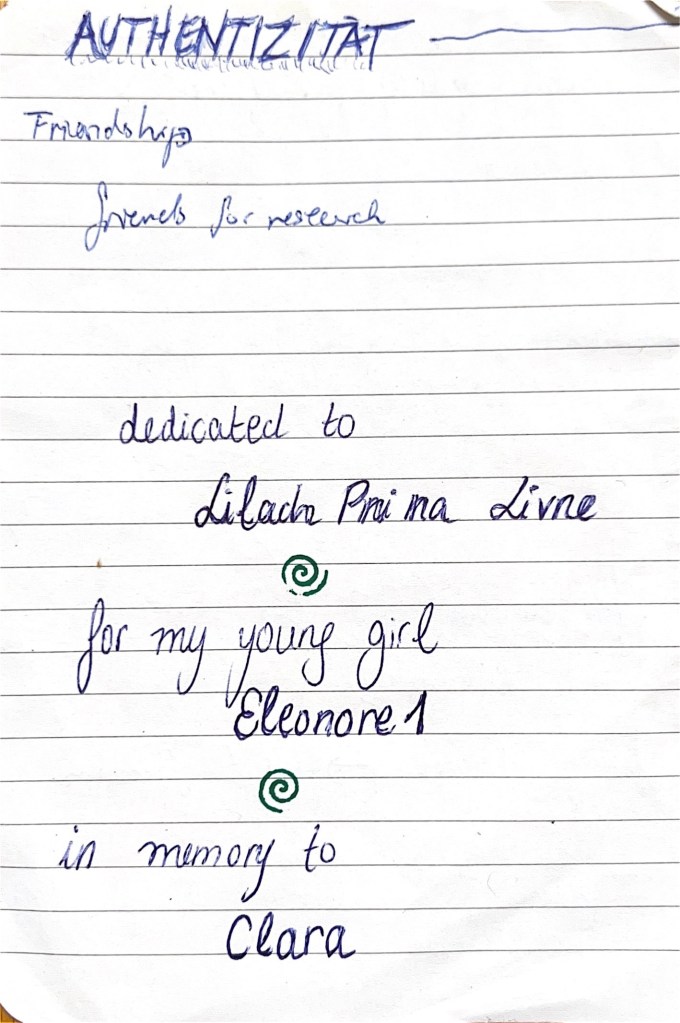 AUTHENTIZITÄT
Friendship
friends for research
dedicated to
Lilach Pnina Livne
for my young girl
Eleonore 1
in memory to
Clara